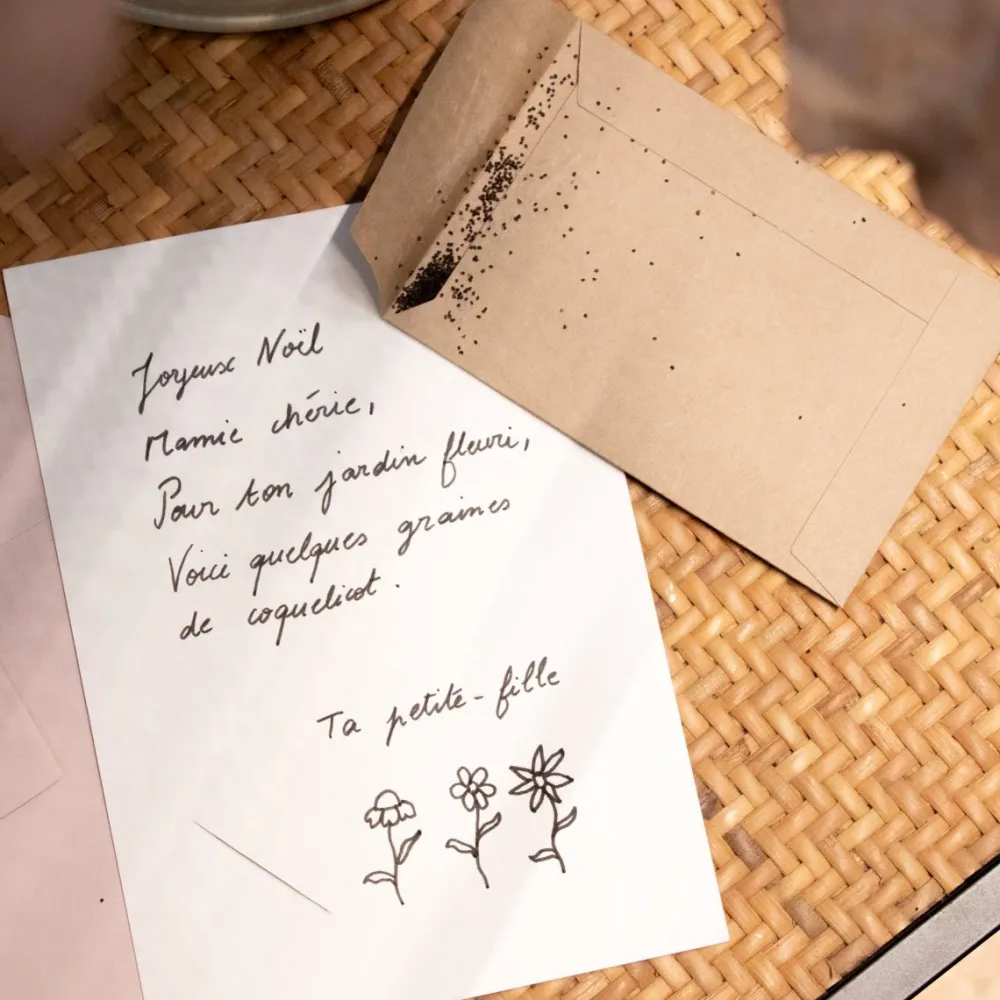 Joyeux Noël
Mamie chérie,
Pour ton jardin fleuri,
Voici quelques graines
de coquelicot.
Ta petite-fille